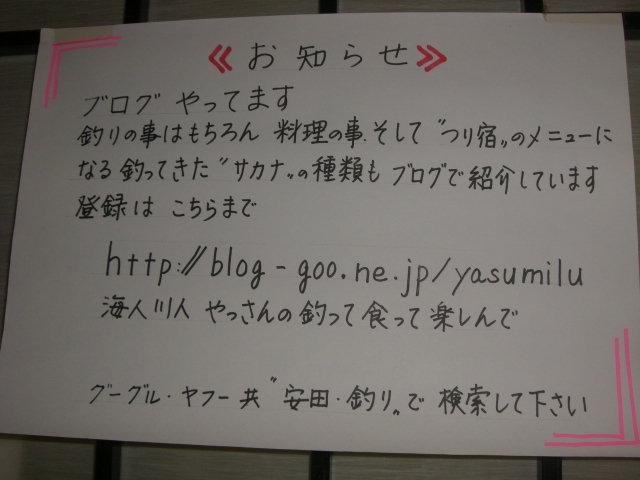 ≪お知らせ≫
ブログ やってます
釣りの事はもちろん 料理の事、そして〝つり宿〟のメニューに
なる 釣ってきた〝サカナ〟の種類も ブログで紹介しています
登録は こちらまで
http://blog-goo.ne.jp/yasumilu
海人川人 やっさんの釣って食って楽しんで
グーグル・ヤフー共〝安田・釣り〟で 検索して下さい